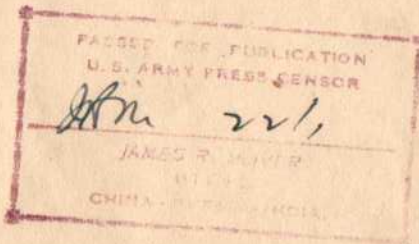 PASSED FOR PUBLICATION
U. S. ARMY PRESS CENSOR
22/1
JAMES R.
CHINA - BURMA - INDIA